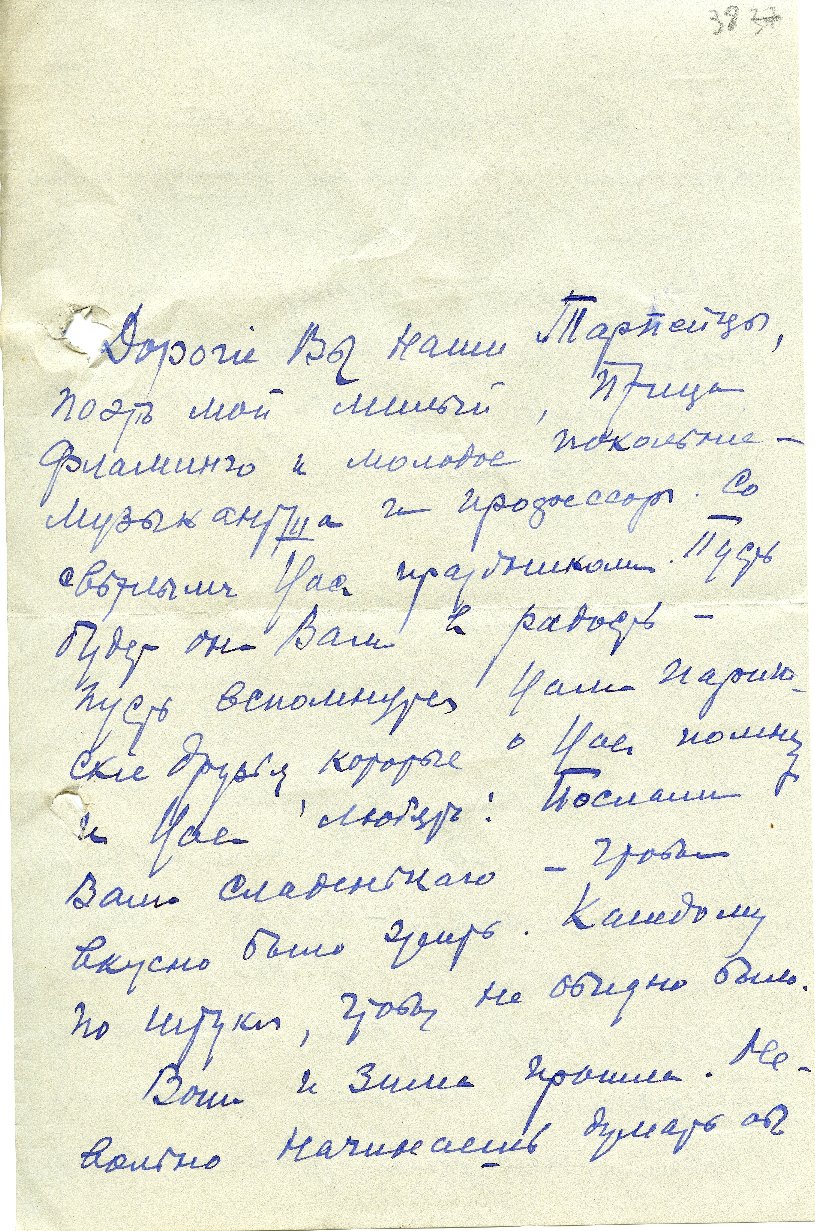 38 27
Дорогіе Вы наши Тарпейцы,
поэтъ мой милый, Птица
Фламинго и молодое поколѣніе –
музыкантша и профессоръ. Со
свѣтлымъ Васъ праздникомъ. Пусть
будетъ онъ Вамъ въ радость –
пусть вспомнутся Вамъ париж-
скіе друзья, которые о Васъ помнятъ
и Васъ любятъ! Послали
Вамъ сладенькаго – чтобы
вкусно было ѣсть. Каждому
по штукѣ, чтобы не обидно было.
Вотъ и зима прошла. Не-
вольно начинаешь думать объ